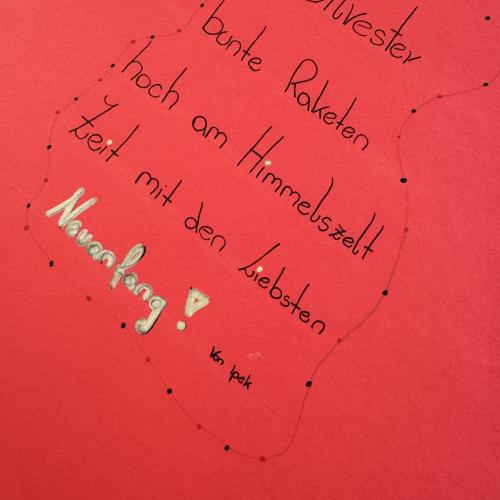 Silvester
bunte Raketen
hoch am Himmelszelt
Zeit mit den Liebsten
Neuanfang!
Von Ipek